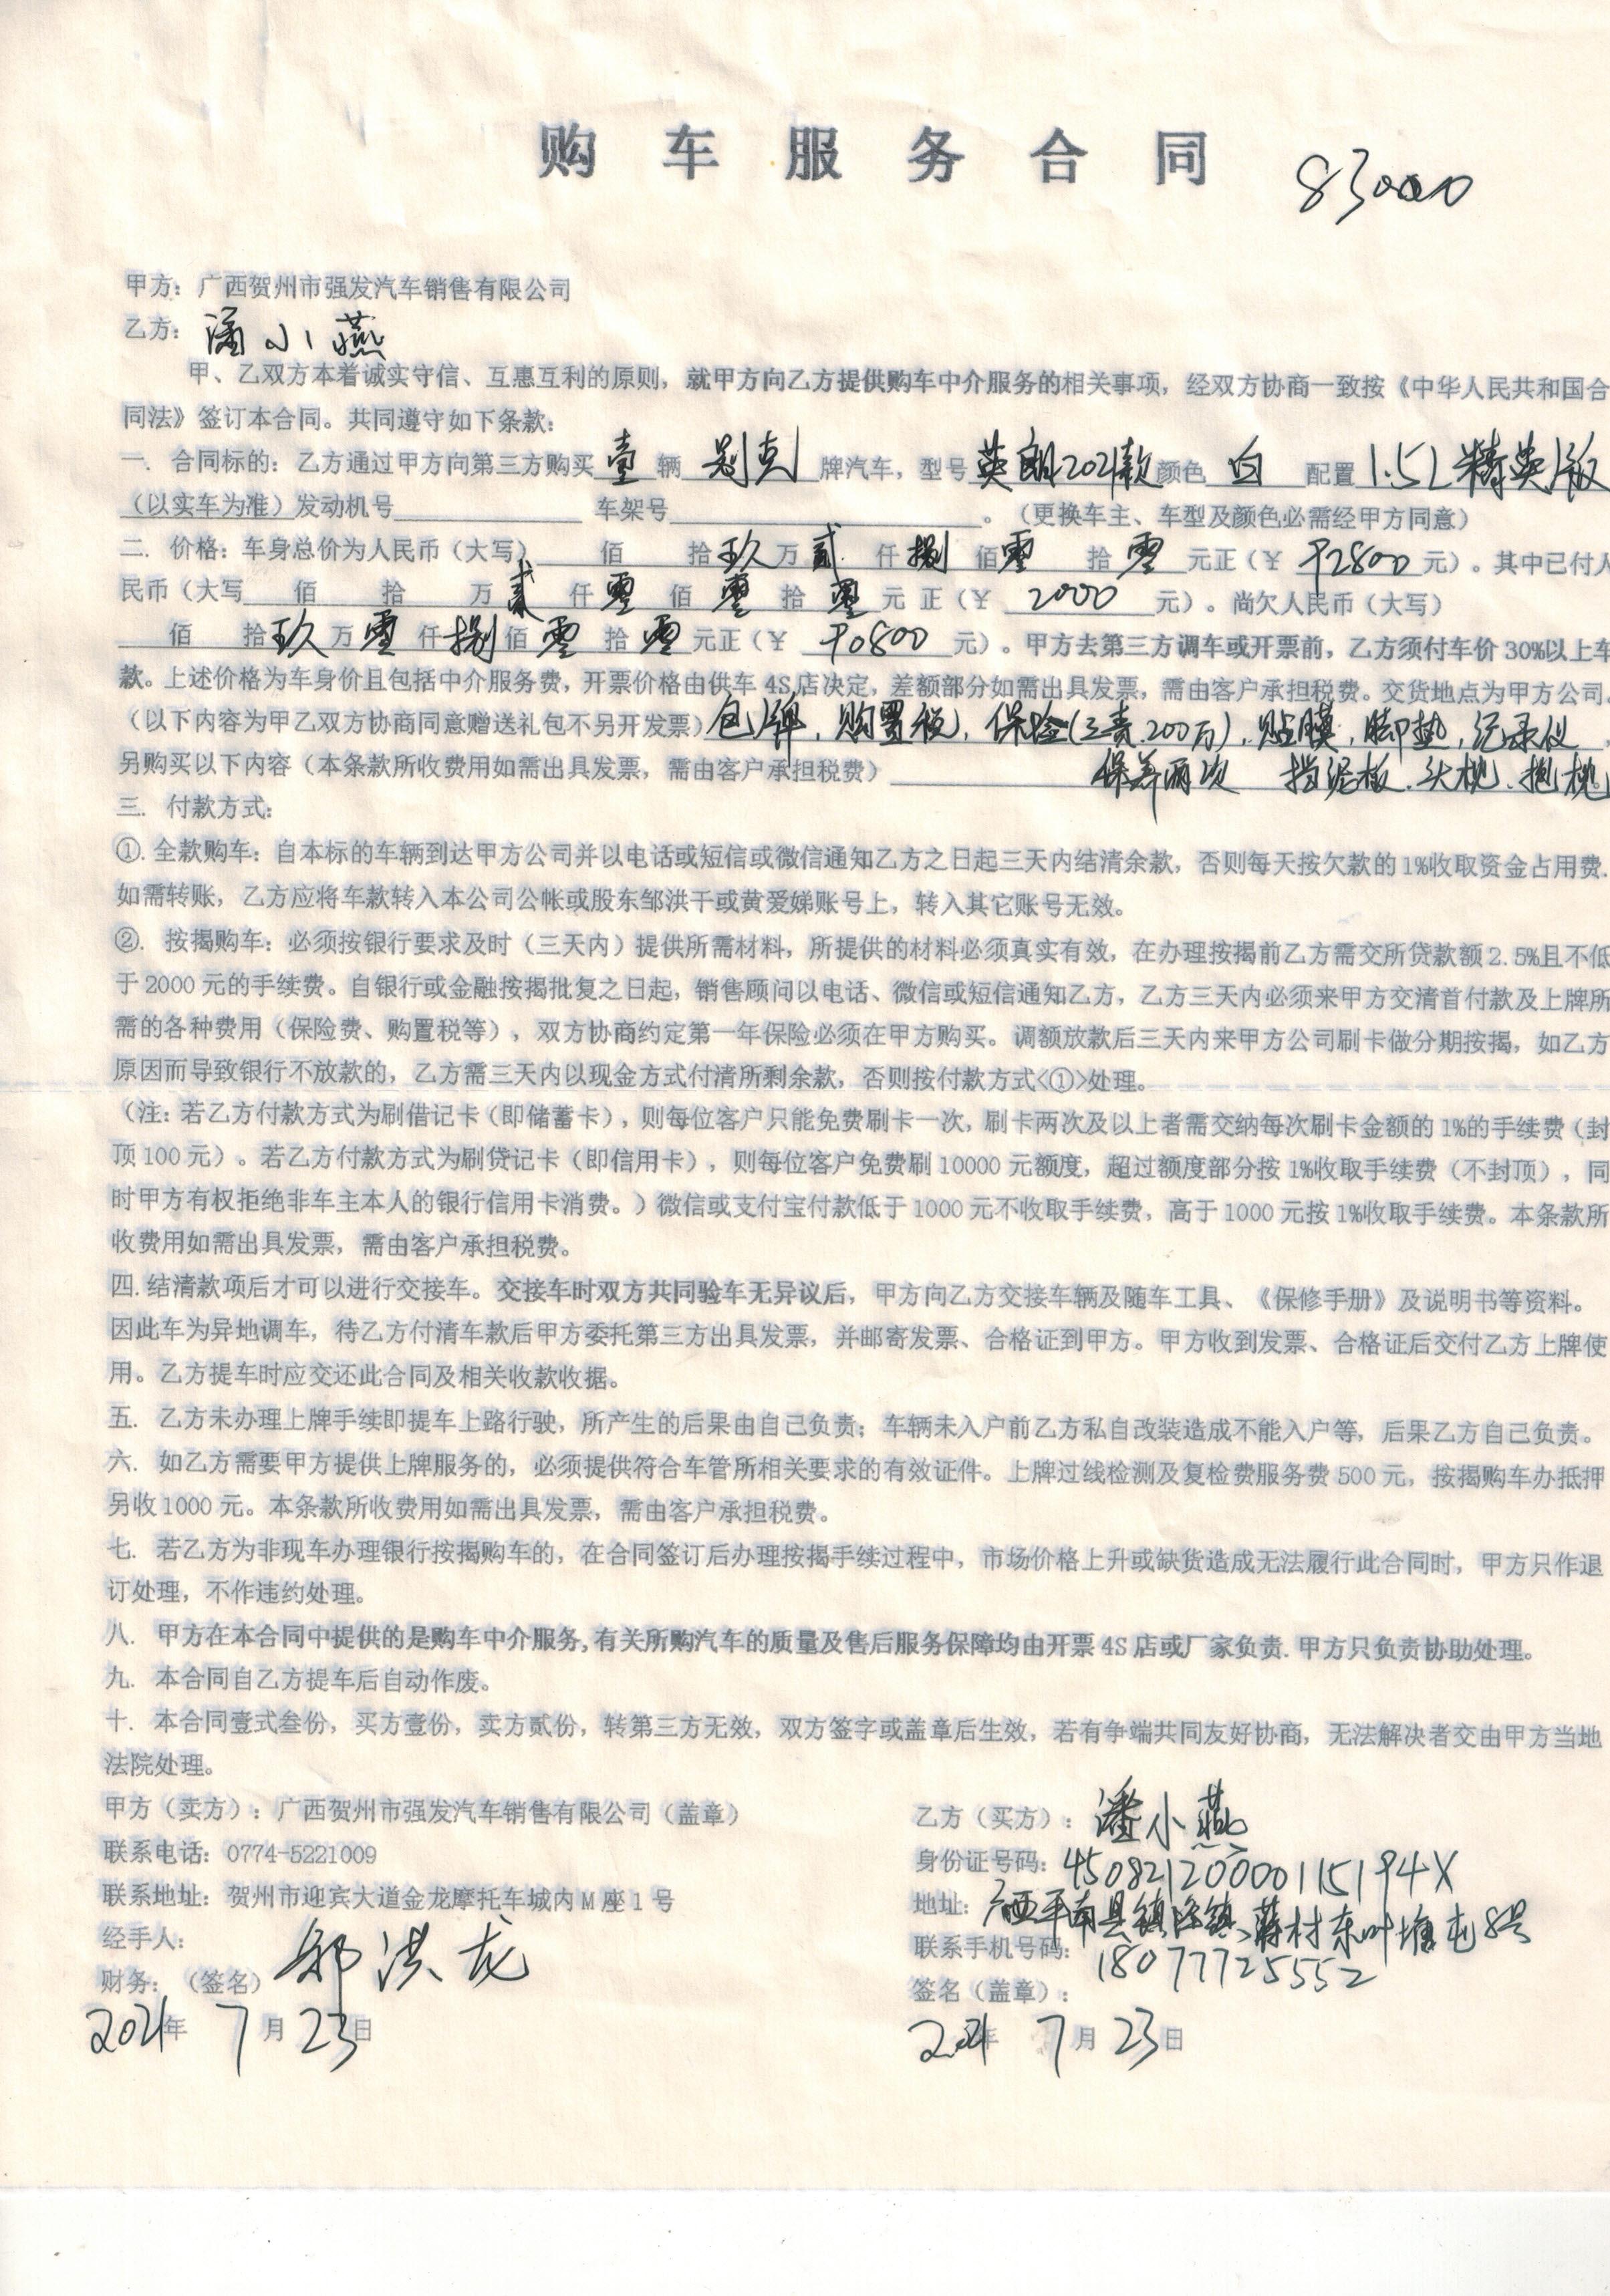 购车服务合同
83000
甲方：广西贺州市强发汽车销售有限公司
乙方：潘小燕
甲、乙双方本着诚实守信、互惠互利的原则，就甲方向乙方提供购车中介服务的相关事项，经双方协商一致按《中华人民共和国合
同法》签订本合同。共同遵守如下条款：
一．合同标的：乙方通过甲方向第三方购买壹辆别克牌汽车，型号英朗2021款颜色白 配置1.5L精英版
（以实车为准）发动机号 车架号 。（更换车主、车型及颜色必需经甲方同意）
二．价格：车身总价为人民币（大写） 佰 拾玖万贰仟捌佰零拾零元正（¥ 92800元）。其中已付人
民币（大写 佰 拾 万贰仟零佰零拾零元正（¥ 2000 元）。尚欠人民币（大写）
佰 拾玖万零仟捌佰零拾零元正（¥ 90800 元）。甲方去第三方调车或开票前，乙方须付车价30%以上车
款。上述价格为车身价且包括中介服务费，开票价格由供车4S店决定，差额部分如需出具发票，需由客户承担税费。交货地点为甲方公司。
（以下内容为甲乙双方协商同意赠送礼包不另开发票）包牌，购置税，保险（三责.200万），贴膜，脚垫，记录仪，
另购买以下内容（本条款所收费用如需出具发票，需由客户承担税费） 保养两次 挡泥板．头枕．抱枕
三．付款方式：
①．全款购车：自本标的车辆到达甲方公司并以电话或短信或微信通知乙方之日起三天内结清余款，否则每天按欠款的1%收取资金占用费．
如需转账，乙方应将车款转入本公司公帐或股东邹洪干或黄爱娣账号上，转入其它账号无效。
②．按揭购车：必须按银行要求及时（三天内）提供所需材料，所提供的材料必须真实有效，在办理按揭前乙方需交所贷款额2.5%且不低
于2000元的手续费。自银行或金融按揭批复之日起，销售顾问以电话、微信或短信通知乙方，乙方三天内必须来甲方交清首付款及上牌所
需的各种费用（保险费、购置税等），双方协商约定第一年保险必须在甲方购买。调额放款后三天内来甲方公司刷卡做分期按揭，如乙方
原因而导致银行不放款的，乙方需三天内以现金方式付清所剩余款，否则按付款方式<①>处理。
（注：若乙方付款方式为刷借记卡（即储蓄卡），则每位客户只能免费刷卡一次，刷卡两次及以上者需交纳每次刷卡金额的1%的手续费（封
顶100元）。若乙方付款方式为刷贷记卡（即信用卡），则每位客户免费刷10000元额度，超过额度部分按1%收取手续费（不封顶），同
时甲方有权拒绝非车主本人的银行信用卡消费。）微信或支付宝付款低于1000元不收取手续费，高于1000元按1%收取手续费。本条款所
收费用如需出具发票，需由客户承担税费。
四．结清款项后才可以进行交接车。交接车时双方共同验车无异议后，甲方向乙方交接车辆及随车工具、《保修手册》及说明书等资料。
因此车为异地调车，待乙方付清车款后甲方委托第三方出具发票，并邮寄发票、合格证到甲方。甲方收到发票、合格证后交付乙方上牌使
用。乙方提车时应交还此合同及相关收款收据。
五．乙方未办理上牌手续即提车上路行驶，所产生的后果由自己负责；车辆未入户前乙方私自改装造成不能入户等，后果乙方自己负责。
六．如乙方需要甲方提供上牌服务的，必须提供符合车管所相关要求的有效证件。上牌过线检测及复检费服务费500元，按揭购车办抵押
另收1000元。本条款所收费用如需出具发票，需由客户承担税费。
七．若乙方为非现车办理银行按揭购车的，在合同签订后办理按揭手续过程中，市场价格上升或缺货造成无法履行此合同时，甲方只作退
订处理，不作违约处理。
八．甲方在本合同中提供的是购车中介服务，有关所购汽车的质量及售后服务保障均由开票4S店或厂家负责．甲方只负责协助处理。
九．本合同自乙方提车后自动作废。
十．本合同壹式叁份，买方壹份，卖方贰份，转第三方无效，双方签字或盖章后生效，若有争端共同友好协商，无法解决者交由甲方当地
法院处理。
甲方（卖方）：广西贺州市强发汽车销售有限公司（盖章）
联系电话：0774-5221009
联系地址：贺州市迎宾大道金龙摩托车城内M座1号
经手人：
财务：（签名）邹洪龙
2021年 7月23日
乙方（买方）：潘小燕
身份证号码：45082120000115194X
地址：广西平南县镇隆镇 蒋村东叶塘屯8号
联系手机号码：18077725552
签名（盖章）：
2021年 7月23日